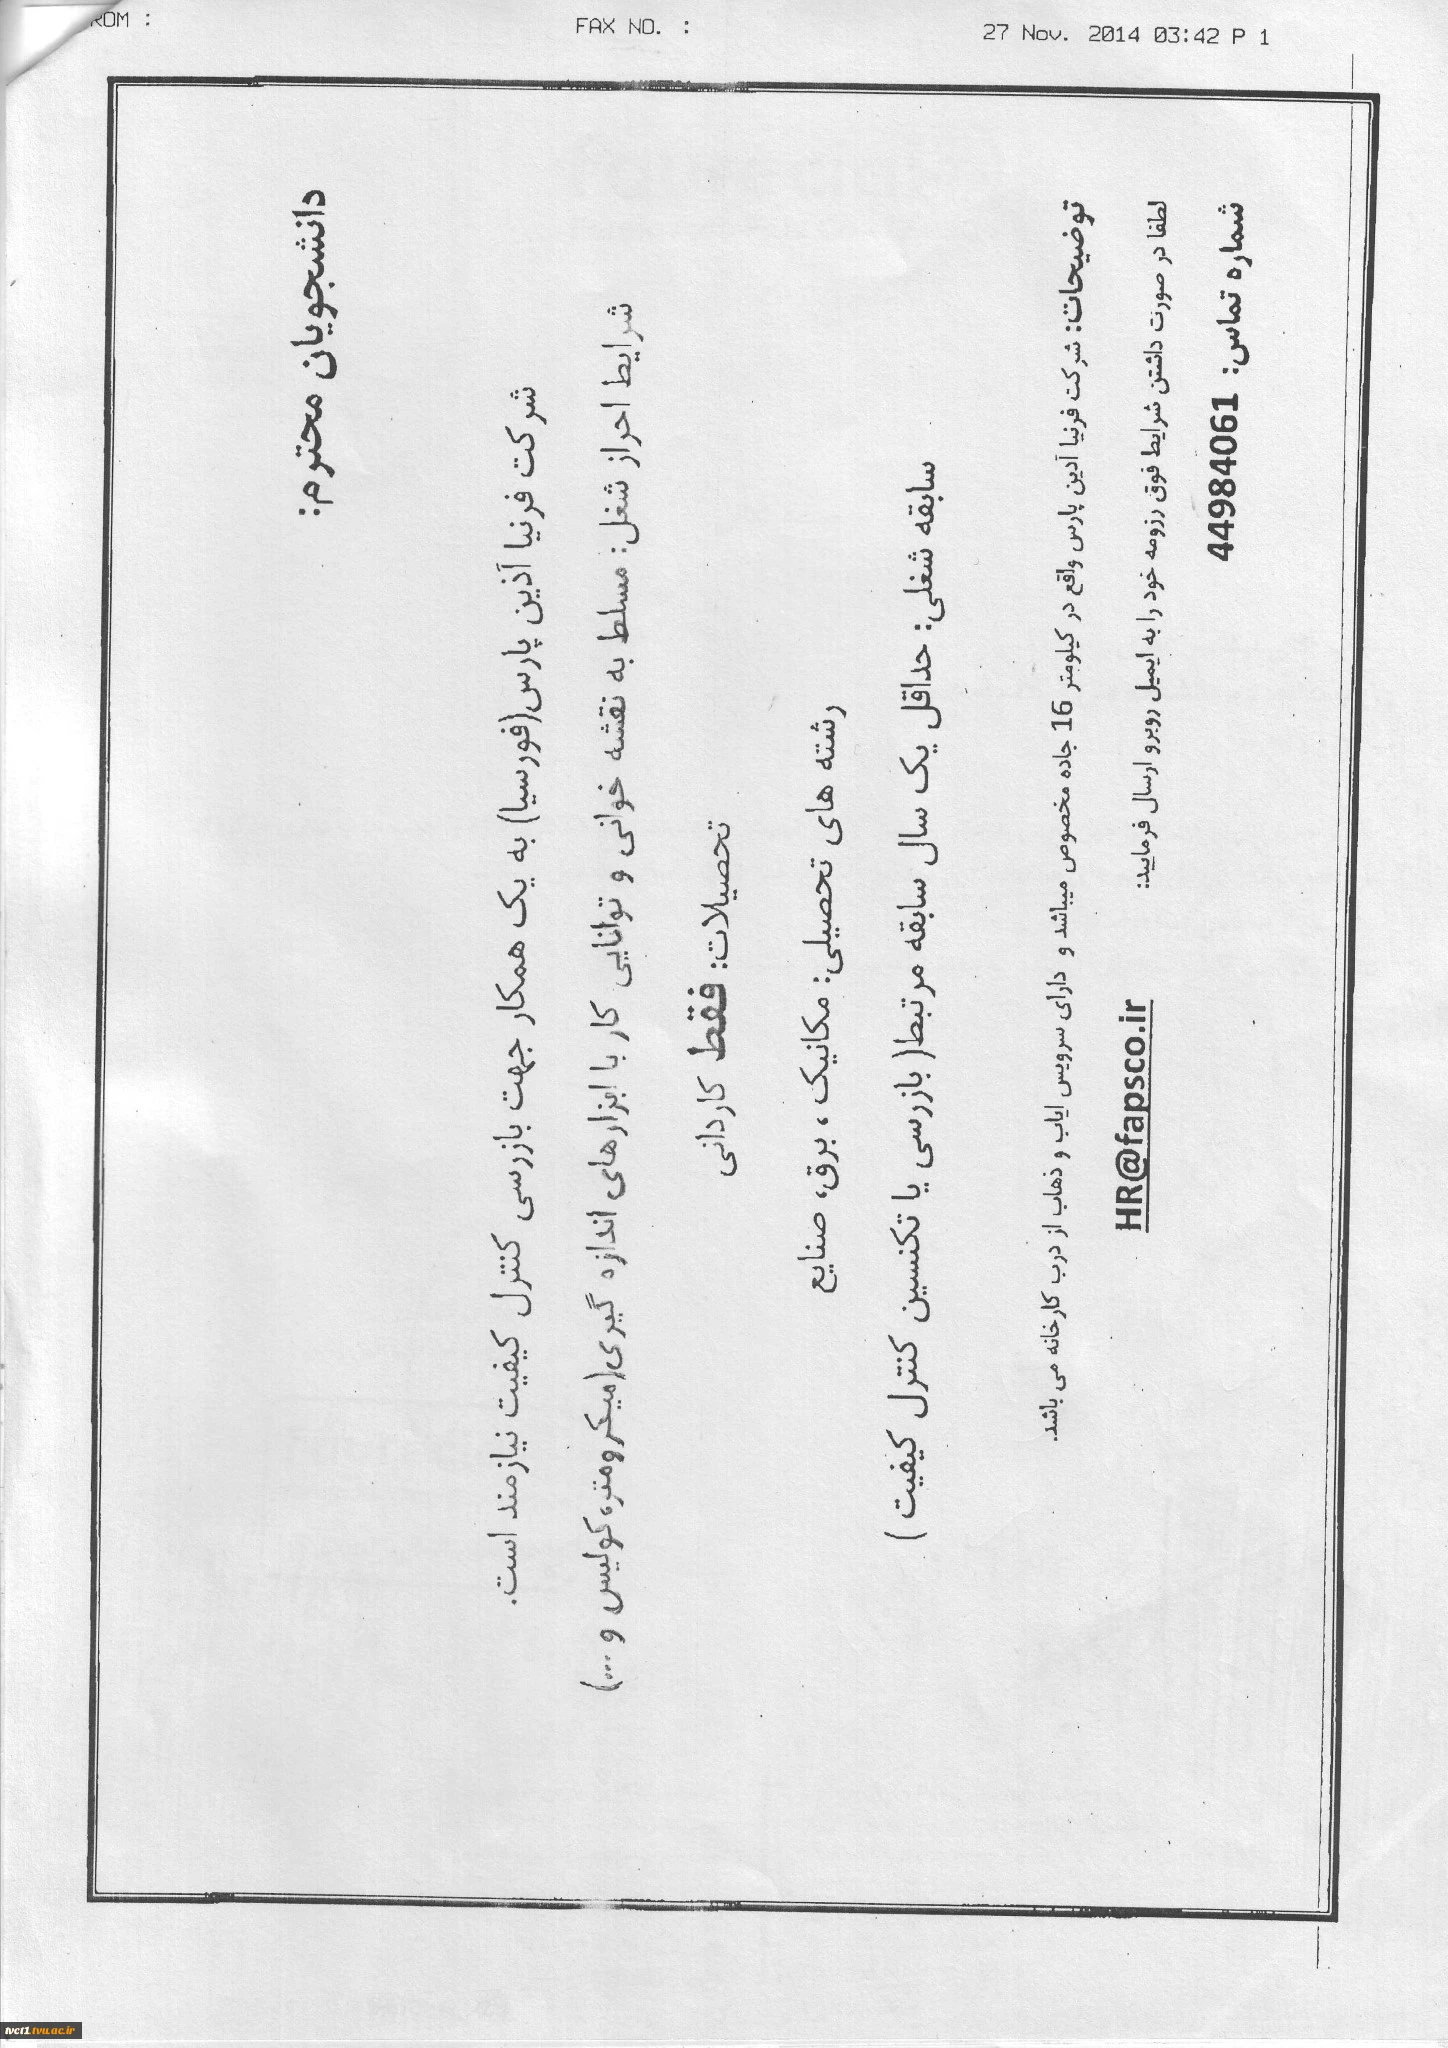 ROM :
FAX NO. :
27 Nov. 2014 03:42 P 1
دانشجویان محترم:
شرکت فرنیا آذین پارس(فورسیا) به یک همکار جهت بازرسی کنترل کیفیت نیازمند است.
شرایط احراز شغل: مسلط به نقشه خوانی و توانایی کار با ابزارهای اندازه گیری(میکرومتر،کولیس و ...)
تحصیلات: فقط کاردانی
رشته های تحصیلی: مکانیک ، برق، صنایع
سابقه شغلی: حداقل یک سال سابقه مرتبط( بازرسی یا تکنسین کنترل کیفیت )
توضیحات: شرکت فرنیا آذین پارس واقع در کیلومتر 16 جاده مخصوص میباشد و دارای سرویس ایاب و ذهاب از درب کارخانه می باشد.
لطفا در صورت داشتن شرایط فوق رزومه خود را به ایمیل روبرو ارسال فرمایید: HR@fapsco.ir
شماره تماس: 44984061
tvct1.tvu.ac.ir